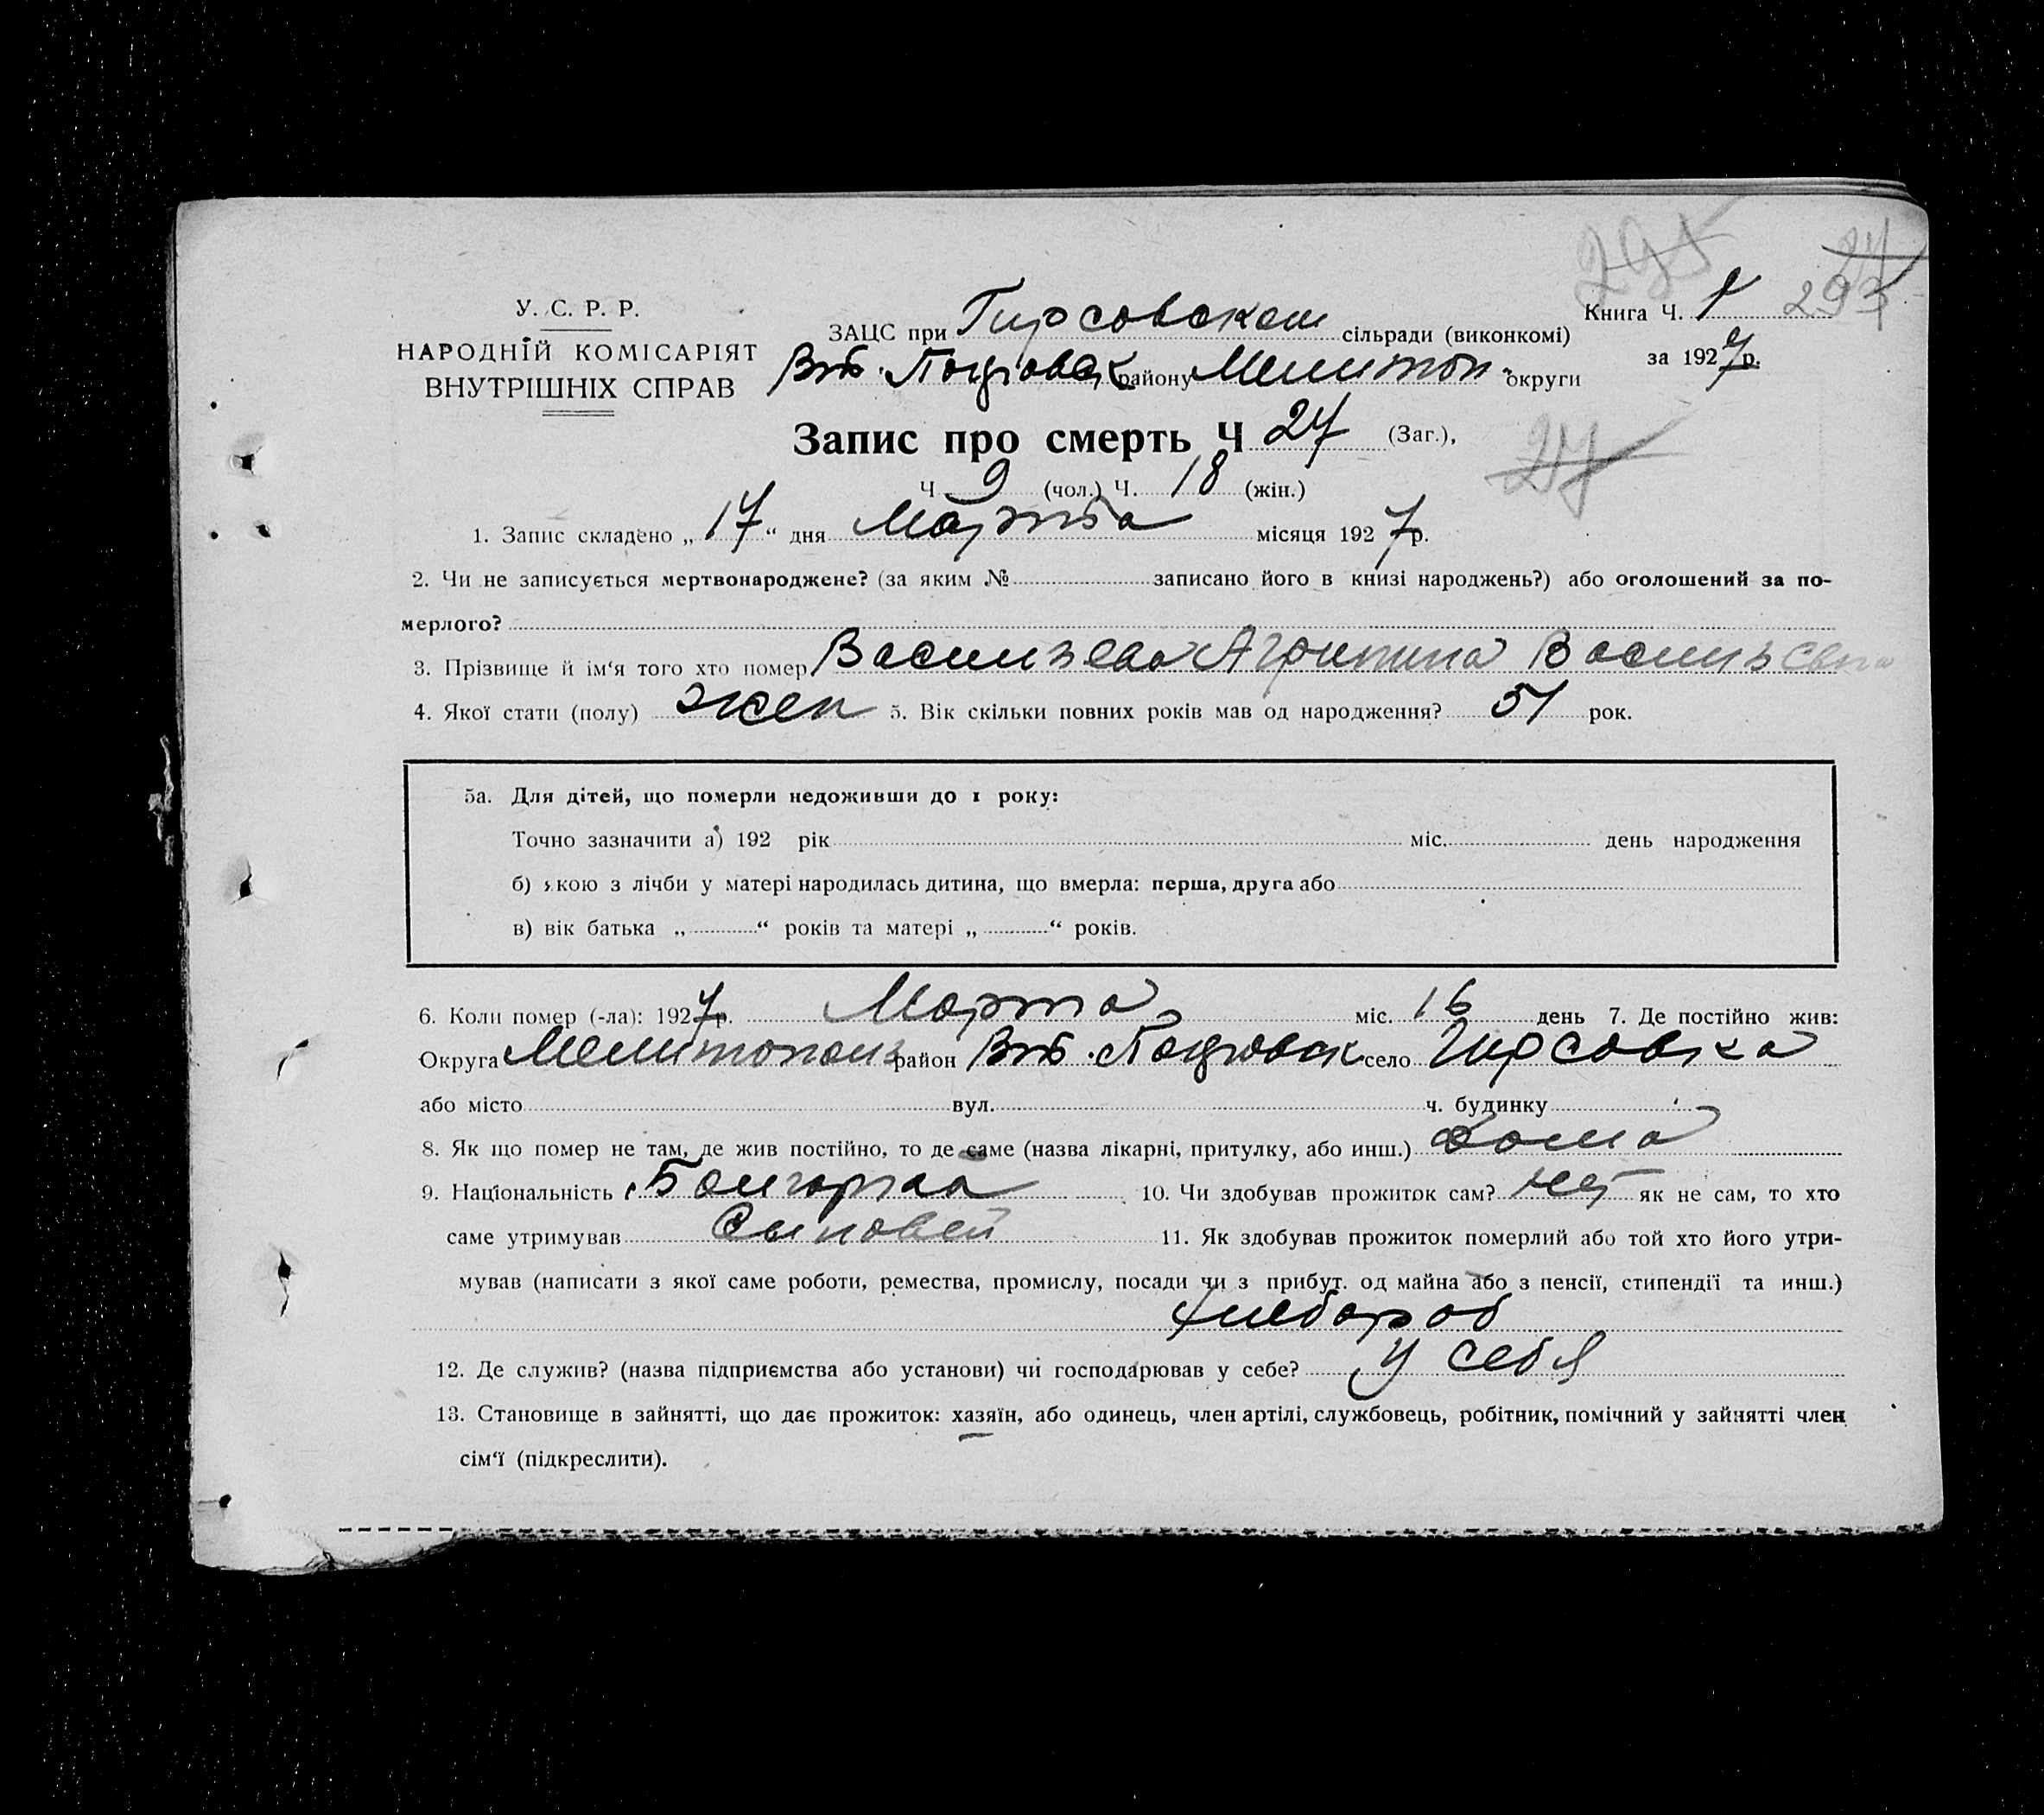 295 24
293
У. С. Р. Р.
НАРОДНІЙ КОМІСАРІЯТ
ВНУТРІШНІХ СПРАВ
ЗАЦС при Гирсовском сільради (виконкомі)
Книга Ч. 1
за 1927 р.
району Мелитоп. округи
Запис про смерть Ч 27 (Заг.),
27
Ч 9 (чол.) Ч. 18 (жін.)
1. Запис складено „17“ дня Марта місяця 1927 р.
2. Чи не записується мертвонароджене? (за яким № записано його в книзі народжень?) або оголошений за по-
мерлого?
3. Прізвище й ім‘я того хто помер Васильева Агрипина Васильевна
4. Якої стати (полу) жен 5. Вік скільки повних років мав од народження? 51 рок.
5а. Для дітей, що померли недоживши до 1 року:
Точно зазначити а) 192 рік міс. день народження
б) якою з лічби у матері народилась дитина, що вмерла: перша, друга або
в) вік батька „ “ років та матері „ “ років.
6. Коли помер (-ла): 1927 р. Марта міс. 16 день 7. Де постійно жив:
Округа Мелитопол район село Гирсовка
або місто вул. ч. будинку
8. Як що помер не там, де жив постійно, то де саме (назва лікарні, притулку, або инш.) дома
9. Національність Болгарка 10. Чи здобував прожиток сам? нет як не сам, то хто
саме утримував Сыновей 11. Як здобував прожиток померлий або той хто його утри-
мував (написати з якої саме роботи, ремества, промислу, посади чи з прибут. од майна або з пенсії, стипендії та инш.)
хлебороб
12. Де служив? (назва підприємства або установи) чи господарював у себе? у себя
13. Становище в зайнятті, що дає прожиток: хазяїн, або одинець, член артілі, службовець, робітник, помічний у зайнятті член
сім‘ї (підкреслити).